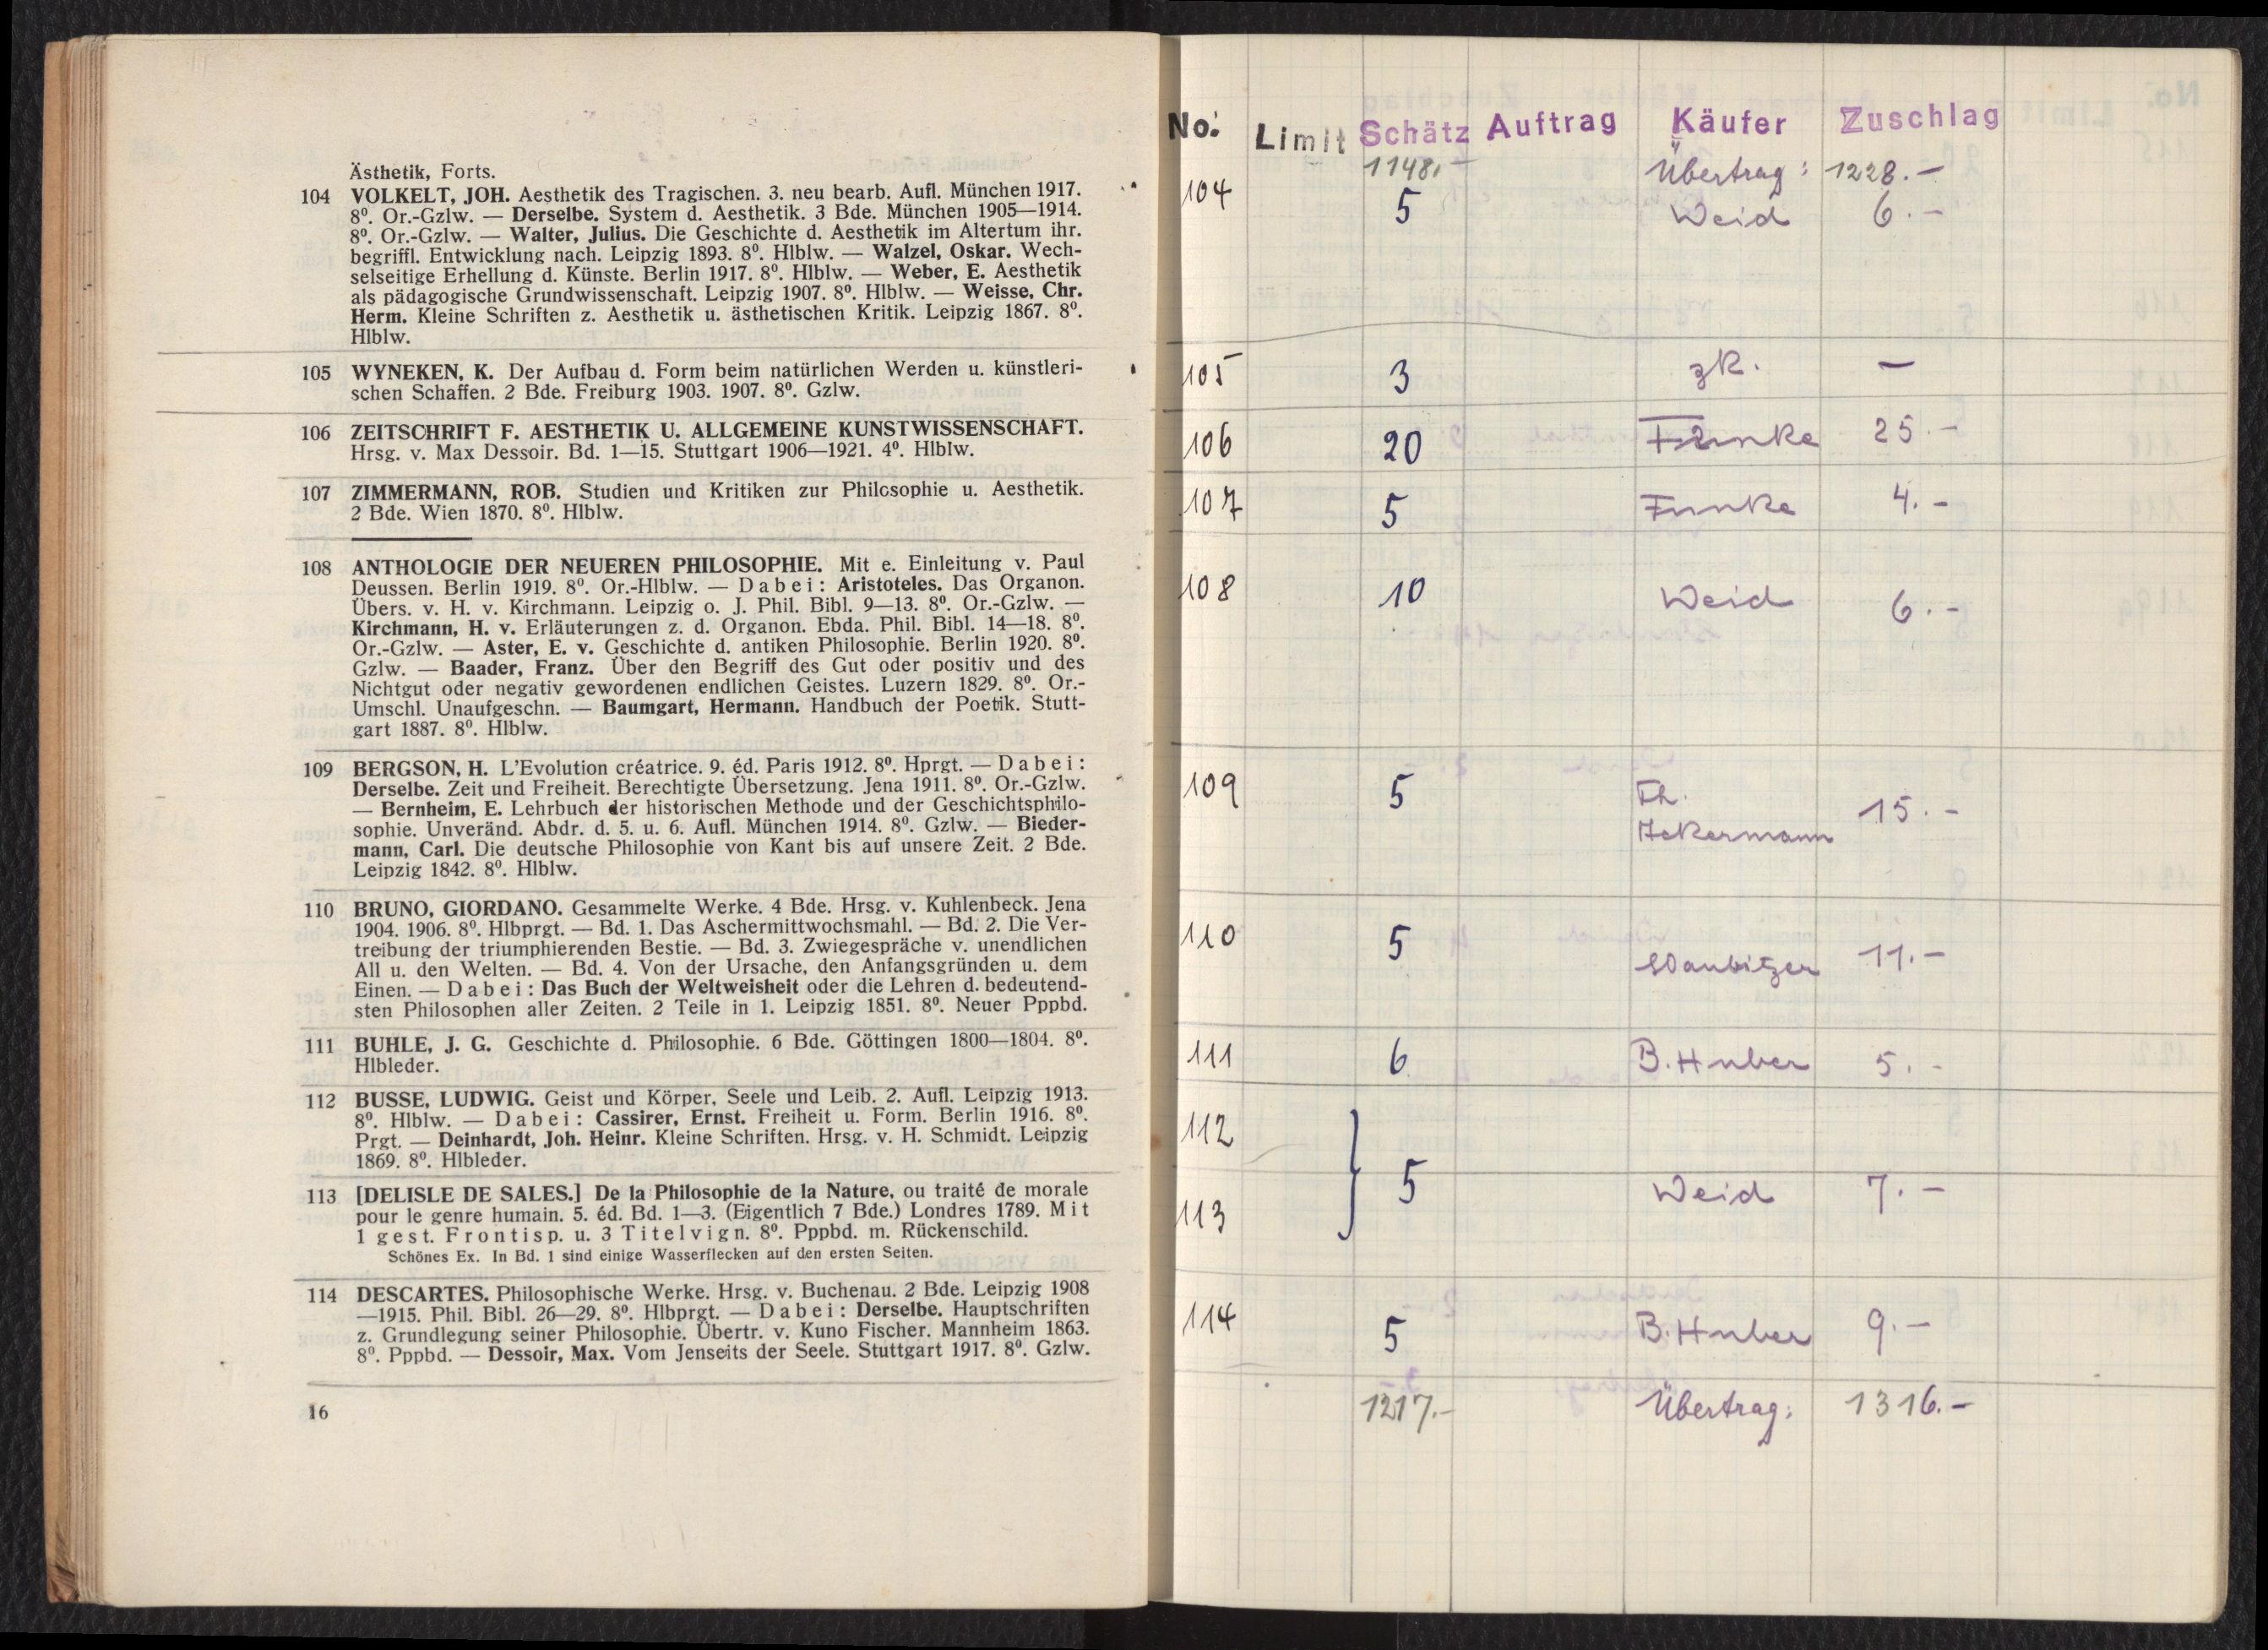 Ästhetik, Forts.
104 VOLKELT, JOH. Aesthetik des Tragischen. 3. neu bearb. Aufl. München 1917.
8⁰. Or.-Gzlw. — Derselbe. System d. Aesthetik. 3 Bde. München 1905—1914.
8⁰. Or.-Gzlw. — Walter, Julius. Die Geschichte d. Aesthetik im Altertum ihr.
begriffl. Entwicklung nach. Leipzig 1893. 8⁰. Hlblw. — Walzel, Oskar. Wech-
selseitige Erhellung d. Künste. Berlin 1917. 8⁰. Hlblw. — Weber, E. Aesthetik
als pädagogische Grundwissenschaft. Leipzig 1907. 8⁰. Hlblw. — Weisse, Chr.
Herm. Kleine Schriften z. Aesthetik u. ästhetischen Kritik. Leipzig 1867. 8⁰.
Hlblw.
105 WYNEKEN, K. Der Aufbau d. Form beim natürlichen Werden u. künstleri-
schen Schaffen. 2 Bde. Freiburg 1903. 1907. 8⁰. Gzlw.
106 ZEITSCHRIFT F. AESTHETIK U. ALLGEMEINE KUNSTWISSENSCHAFT.
Hrsg. v. Max Dessoir. Bd. 1—15. Stuttgart 1906—1921. 4⁰. Hlblw.
107 ZIMMERMANN, ROB. Studien und Kritiken zur Philosophie u. Aesthetik.
2 Bde. Wien 1870. 8⁰. Hlblw.
108 ANTHOLOGIE DER NEUEREN PHILOSOPHIE. Mit e. Einleitung v. Paul
Deussen. Berlin 1919. 8⁰. Or.-Hlblw. — Dabei: Aristoteles. Das Organon.
Übers. v. H. v. Kirchmann. Leipzig o. J. Phil. Bibl. 9—13. 8⁰. Or.-Gzlw. —
Kirchmann, H. v. Erläuterungen z. d. Organon. Ebda. Phil. Bibl. 14—18. 8⁰.
Or.-Gzlw. — Aster, E. v. Geschichte d. antiken Philosophie. Berlin 1920. 8⁰.
Gzlw. — Baader, Franz. Über den Begriff des Gut oder positiv und des
Nichtgut oder negativ gewordenen endlichen Geistes. Luzern 1829. 8⁰. Or.-
Umschl. Unaufgeschn. — Baumgart, Hermann. Handbuch der Poetik. Stutt-
gart 1887. 8⁰. Hlblw.
109 BERGSON, H. L'Evolution créatrice. 9. éd. Paris 1912. 8⁰. Hprgt. — Dabei:
Derselbe. Zeit und Freiheit. Berechtigte Übersetzung. Jena 1911. 8⁰. Or.-Gzlw.
— Bernheim, E. Lehrbuch der historischen Methode und der Geschichtsphilo-
sophie. Unveränd. Abdr. d. 5. u. 6. Aufl. München 1914. 8⁰. Gzlw. — Bieder-
mann, Carl. Die deutsche Philosophie von Kant bis auf unsere Zeit. 2 Bde.
Leipzig 1842. 8⁰. Hlblw.
110 BRUNO, GIORDANO. Gesammelte Werke. 4 Bde. Hrsg. v. Kuhlenbeck. Jena
1904. 1906. 8⁰. Hlbprgt. — Bd. 1. Das Aschermittwochsmahl. — Bd. 2. Die Ver-
treibung der triumphierenden Bestie. — Bd. 3. Zwiegespräche v. unendlichen
All u. den Welten. — Bd. 4. Von der Ursache, den Anfangsgründen u. dem
Einen. — Dabei: Das Buch der Weltweisheit oder die Lehren d. bedeutend-
sten Philosophen aller Zeiten. 2 Teile in 1. Leipzig 1851. 8⁰. Neuer Pppbd.
111 BUHLE, J. G. Geschichte d. Philosophie. 6 Bde. Göttingen 1800—1804. 8⁰.
Hlbleder.
112 BUSSE, LUDWIG. Geist und Körper, Seele und Leib. 2. Aufl. Leipzig 1913.
8⁰. Hlblw. — Dabei: Cassirer, Ernst. Freiheit u. Form. Berlin 1916. 8⁰.
Prgt. — Deinhardt, Joh. Heinr. Kleine Schriften. Hrsg. v. H. Schmidt. Leipzig
1869. 8⁰. Hlbleder.
113 [DELISLE DE SALES.] De la Philosophie de la Nature, ou traité de morale
pour le genre humain. 5. éd. Bd. 1—3. (Eigentlich 7 Bde.) Londres 1789. Mit
1 gest. Frontisp. u. 3 Titelvign. 8⁰. Pppbd. m. Rückenschild.
Schönes Ex. In Bd. 1 sind einige Wasserflecken auf den ersten Seiten.
114 DESCARTES. Philosophische Werke. Hrsg. v. Buchenau. 2 Bde. Leipzig 1908
—1915. Phil. Bibl. 26—29. 8⁰. Hlbprgt. — Dabei: Derselbe. Hauptschriften
z. Grundlegung seiner Philosophie. Übertr. v. Kuno Fischer. Mannheim 1863.
8⁰. Pppbd. — Dessoir, Max. Vom Jenseits der Seele. Stuttgart 1917. 8⁰. Gzlw.
16
No. Limit Schätz Auftrag Käufer Zuschlag
1148.— Übertrag: 1228.—
104 5 Weid 6.—
105 3 zk. —
106 20 Funke 25.—
107 5 Funke 4.-
108 10 Weid 6.-
109 5 Th.
Ackermann 15.—
110 5 11.—
111 6 B. Huber 5.-
112
5 Weid 7.—
113
114 5 B. Huber 9.—
1217.— Übertrag: 1316.—